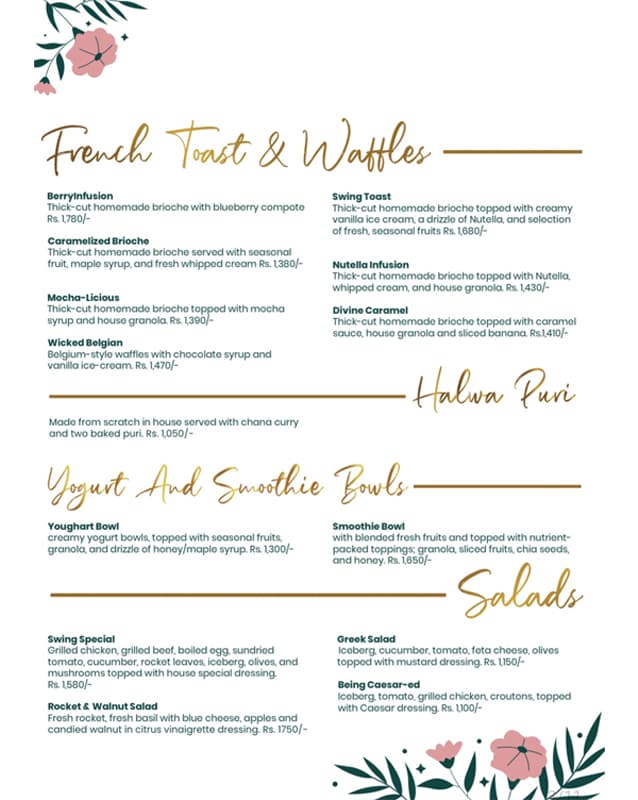 French Toast & Waffles
BerryInfusion
Thick-cut homemade brioche with blueberry compote
Rs. 1,780/-
Caramelized Brioche
Thick-cut homemade brioche served with seasonal
fruit, maple syrup, and fresh whipped cream Rs. 1,380/-
Mocha-Licious
Thick-cut homemade brioche topped with mocha
syrup and house granola. Rs. 1,390/-
Wicked Belgian
Belgium-style waffles with chocolate syrup and
vanilla ice-cream. Rs. 1,470/-
Swing Toast
Thick-cut homemade brioche topped with creamy
vanilla ice cream, a drizzle of Nutella, and selection
of fresh, seasonal fruits Rs. 1,680/-
Nutella Infusion
Thick-cut homemade brioche topped with Nutella,
whipped cream, and house granola. Rs. 1,430/-
Divine Caramel
Thick-cut homemade brioche topped with caramel
sauce, house granola and sliced banana. Rs.1,410/-
Halwa Puri
Made from scratch in house served with chana curry
and two baked puri. Rs. 1,050/-
Yogurt And Smoothie Bowls
Youghart Bowl
creamy yogurt bowls, topped with seasonal fruits,
granola, and drizzle of honey/maple syrup. Rs. 1,300/-
Smoothie Bowl
with blended fresh fruits and topped with nutrient-
packed toppings; granola, sliced fruits, chia seeds,
and honey. Rs. 1,650/-
Salads
Swing Special
Grilled chicken, grilled beef, boiled egg, sundried
tomato, cucumber, rocket leaves, iceberg, olives, and
mushrooms topped with house special dressing.
Rs. 1,580/-
Rocket & Walnut Salad
Fresh rocket, fresh basil with blue cheese, apples and
candied walnut in citrus vinaigrette dressing. Rs. 1750/-
Greek Salad
Iceberg, cucumber, tomato, feta cheese, olives
topped with mustard dressing. Rs. 1,150/-
Being Caesar-ed
Iceberg, tomato, grilled chicken, croutons, topped
with Caesar dressing. Rs. 1,100/-